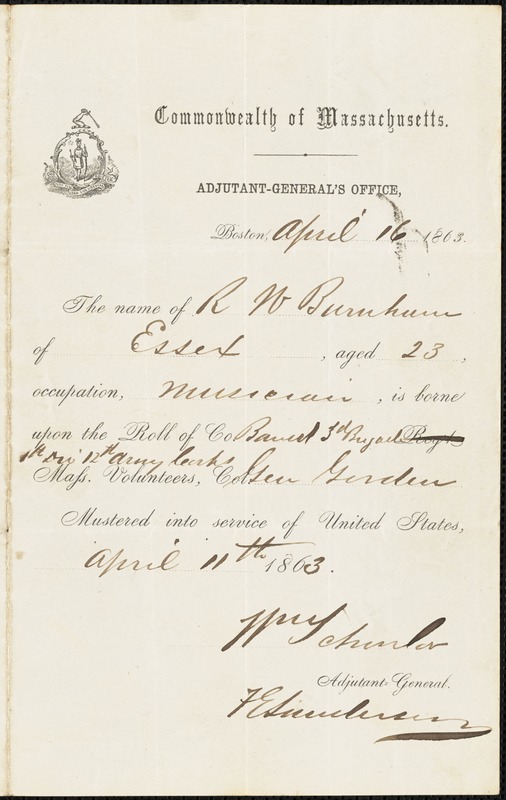 Commonwealth of Massachusetts.
ADJUTANT-GENERAL'S OFFICE,
Boston, April 16 1863.
The name of R W Burnham
of Essex, aged 23,
occupation, Musician, is borne
upon the Roll of Co Band 3d Brigade Reg't
1st Div 12th Army Corps
Mass. Volunteers, Col Gen Gorden
Mustered into service of United States,
April 11th 1863.
Wm Schouler
Adjutant-General.